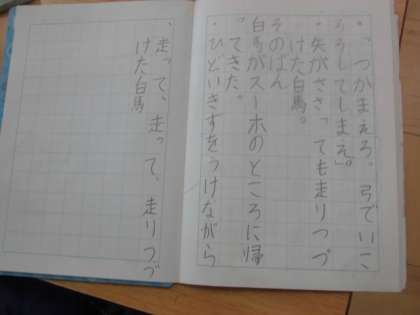 ・「つかまえろ。弓でいこ
ろしてしまえ」。
・矢がささっても走りつづ
けた白馬。
そのばん
白馬がスーホのところに帰
ってきた。
・ひどいきずをうけながら
・走って、走って、走りつづ
けた白馬